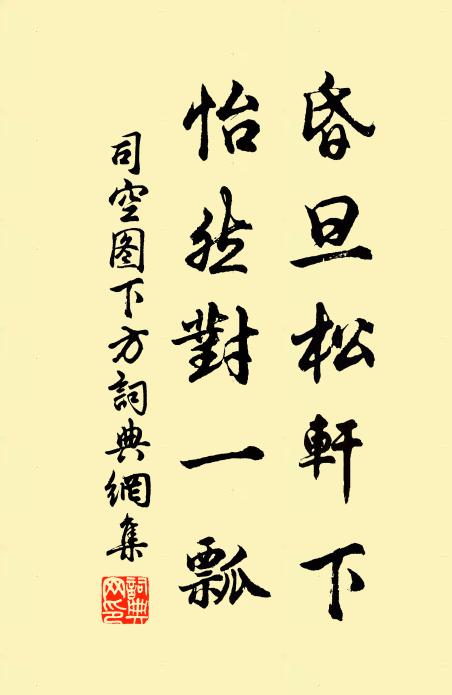 昏旦松軒下
怡然對一瓢
司空图下方詞典網集
詞典網印